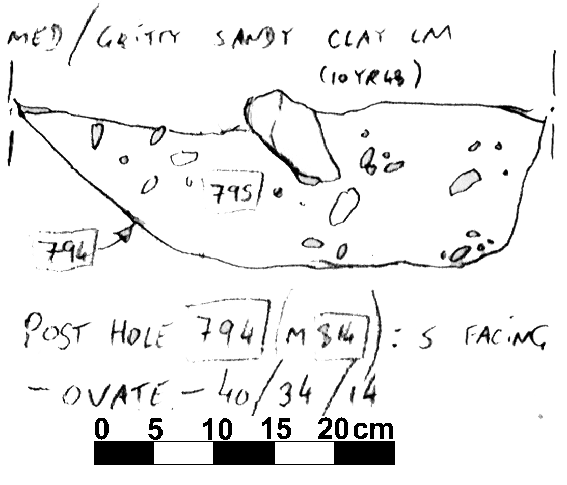 MED/GRITTY SANDY CLAY LM
(10YR4/3)
795
794
POST HOLE 794 (M 814) : S FACING
- OVATE - 40/34/14
0 5 10 15 20cm